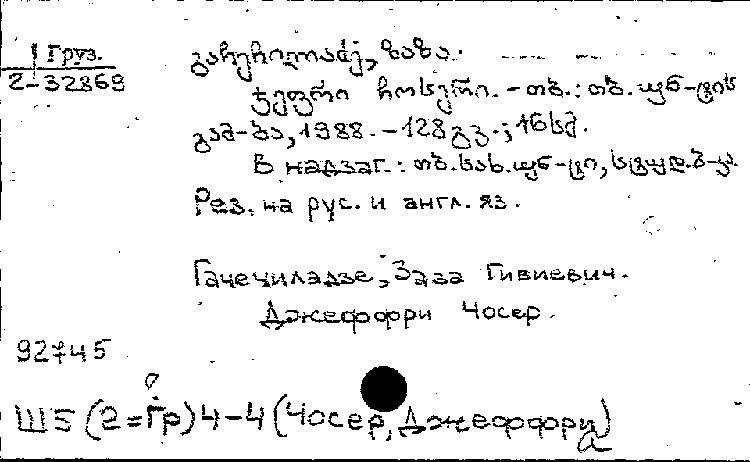 Груз.
2-32869
გაჩეჩილაძე, ზაზა.
ჯეფრი ჩოსერი. - თბ.: თბ. უნ-ტის
გამ-ბა, 1988. - 128 გვ.; 16 სმ.
В надзаг.: თბ. სახ. უნ-ტი, სტუდ. ბ-კა.
Рез. на рус. и англ. яз.
Гачечиладзе, Заза Гивиевич.
Джеффри Чосер.
92745
Ш5(2=Гр)4-4(Чосер, Джеффри)